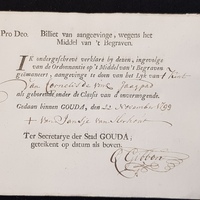 Pro Deo. Billiet van aangeevinge, wegens het
Middel van 't Begraven.
IK ondergeschreve verklare by deezen, ingevolge
van de Ordonnantie op 't Middel van 't Begraven
geëmaneert, aangevinge te doen van het Lyk van 't kint
van Cornelis de
als gehoorende onder de Classis van d'onvermogende.
Gedaan binnen GOUDA, den 22 November 1799
Ter Secretarye der Stad GOUDA;
geteikent op datum als boven.